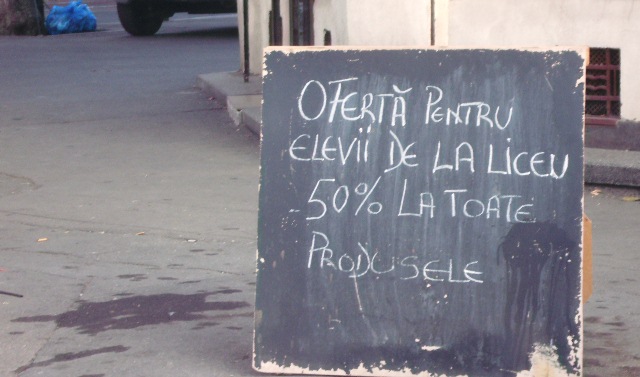 OFERTĂ PENTRU
ELEVII DE LA LICEU
50% LA TOATE
PRODUSELE